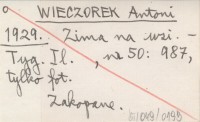 WIECZOREK Antoni
1929. Zima na wsi. -
Tyg. Il., nr 50: 987,
tylko fot.
Zakopane.